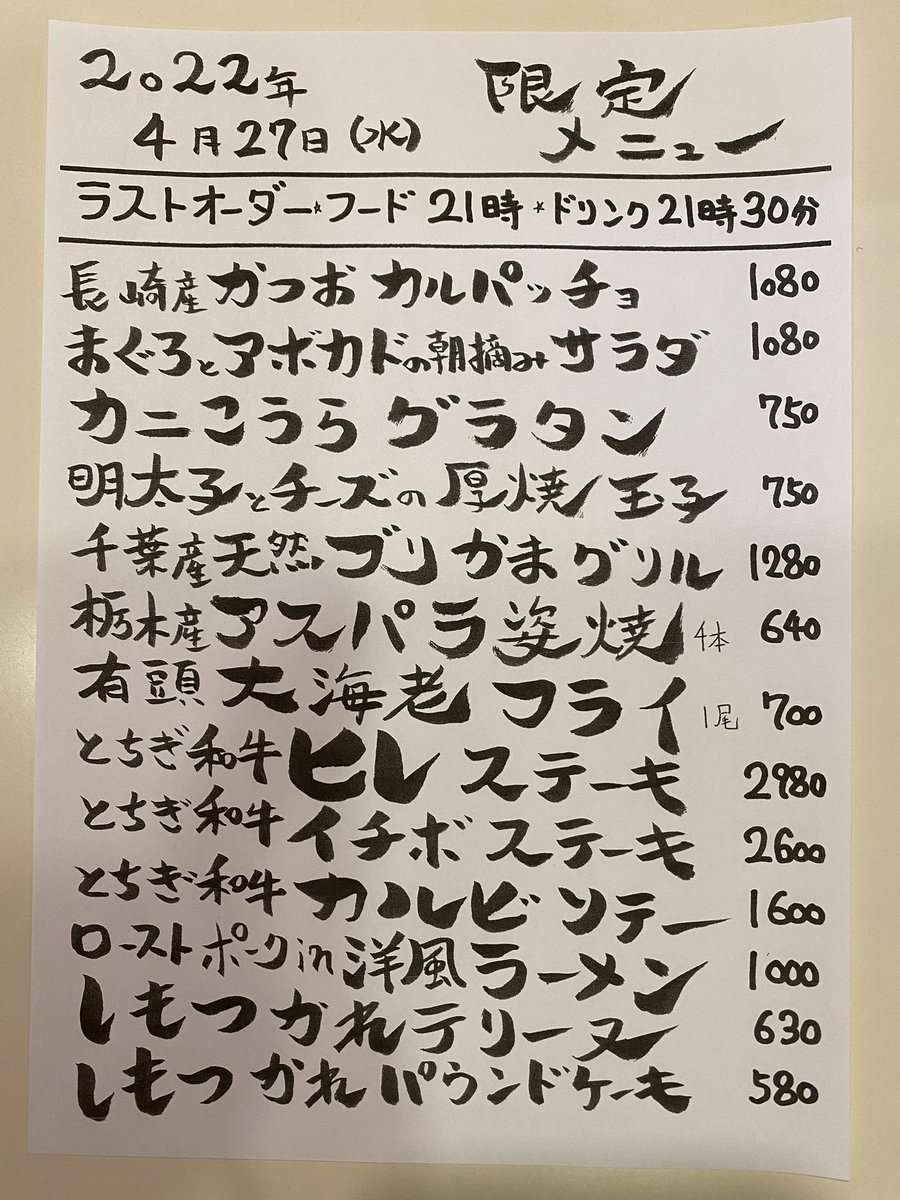 2022年
4月27日(水)
限定
メニュー
ラストオーダー*フード21時*ドリンク21時30分
長崎産かつおカルパッチョ 1080
まぐろとアボカドの朝摘みサラダ 1080
カニこうらグラタン 750
明太子とチーズの厚焼玉子 750
千葉産天然ブリかまグリル 1280
栃木産アスパラ姿焼 4本 640
有頭大海老フライ 1尾 700
とちぎ和牛ヒレステーキ 2980
とちぎ和牛イチボステーキ 2600
とちぎ和牛カルビソテー 1600
ローストポークin洋風ラーメン 1000
しもつかれテリーヌ 630
しもつかれパウンドケーキ 580